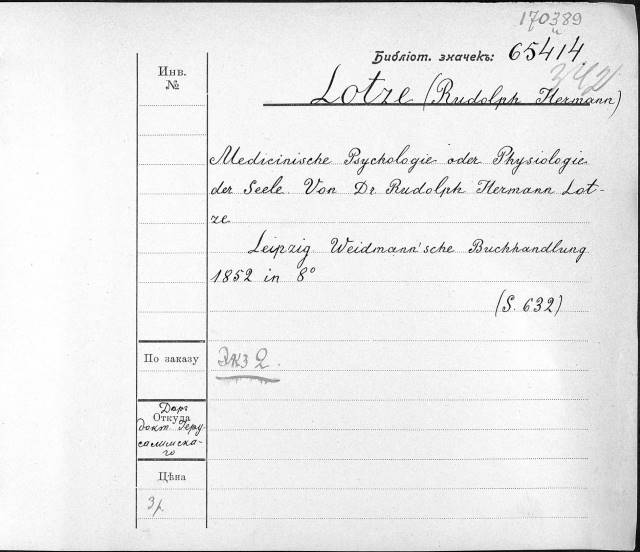 170389
и
Библіот. значекъ: 65414
342
Инв.
№
Lotze (Rudolph Hermann)
Medicinische Psychologie oder Physiologie
der Seele. Von Dr Rudolph Hermann Lot-
ze
Leipzig Weidmann'sche Buchhandlung
1852 in 8°
(S. 632)
По заказу
Экз 2.
Даръ
Откуда
докт. Іеру-
салимска-
го
Цѣна
3р.